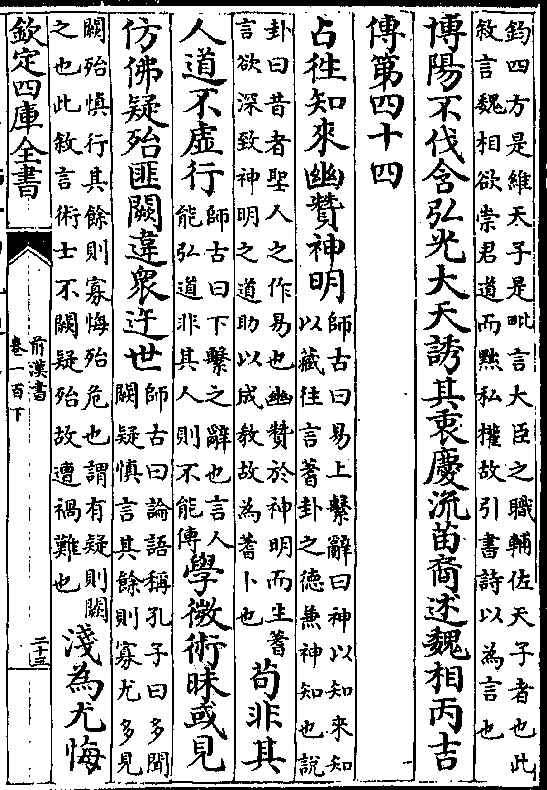 鈞四方是維天子是毗言大臣之職輔佐天子者也此
敘言魏相欲崇君道而黜私權故引書詩以為言也
博陽不伐含弘光大天誘其衷慶流苗裔述魏相丙吉
傳第四十四
占往知來幽贊神明師古曰易上繫辭曰神以知來知
以藏往言蓍卦之德兼神知也說
卦曰昔者聖人之作易也幽贊於神明而生蓍
言欲深致神明之道助以成教故為蓍卜也苟非其
人道不虛行師古曰下繫之辭也言人
能弘道非其人則不能傳學微術昧或見
仿佛疑殆匪闕違衆迕世師古曰論語稱孔子曰多聞
闕疑慎言其餘則寡尤多見
闕殆慎行其餘則寡悔殆危也謂有疑則闕
之也此敘言術士不闕疑殆故遭禍難也淺為尤悔
欽定四庫全書
前漢書
卷一百下
二十三